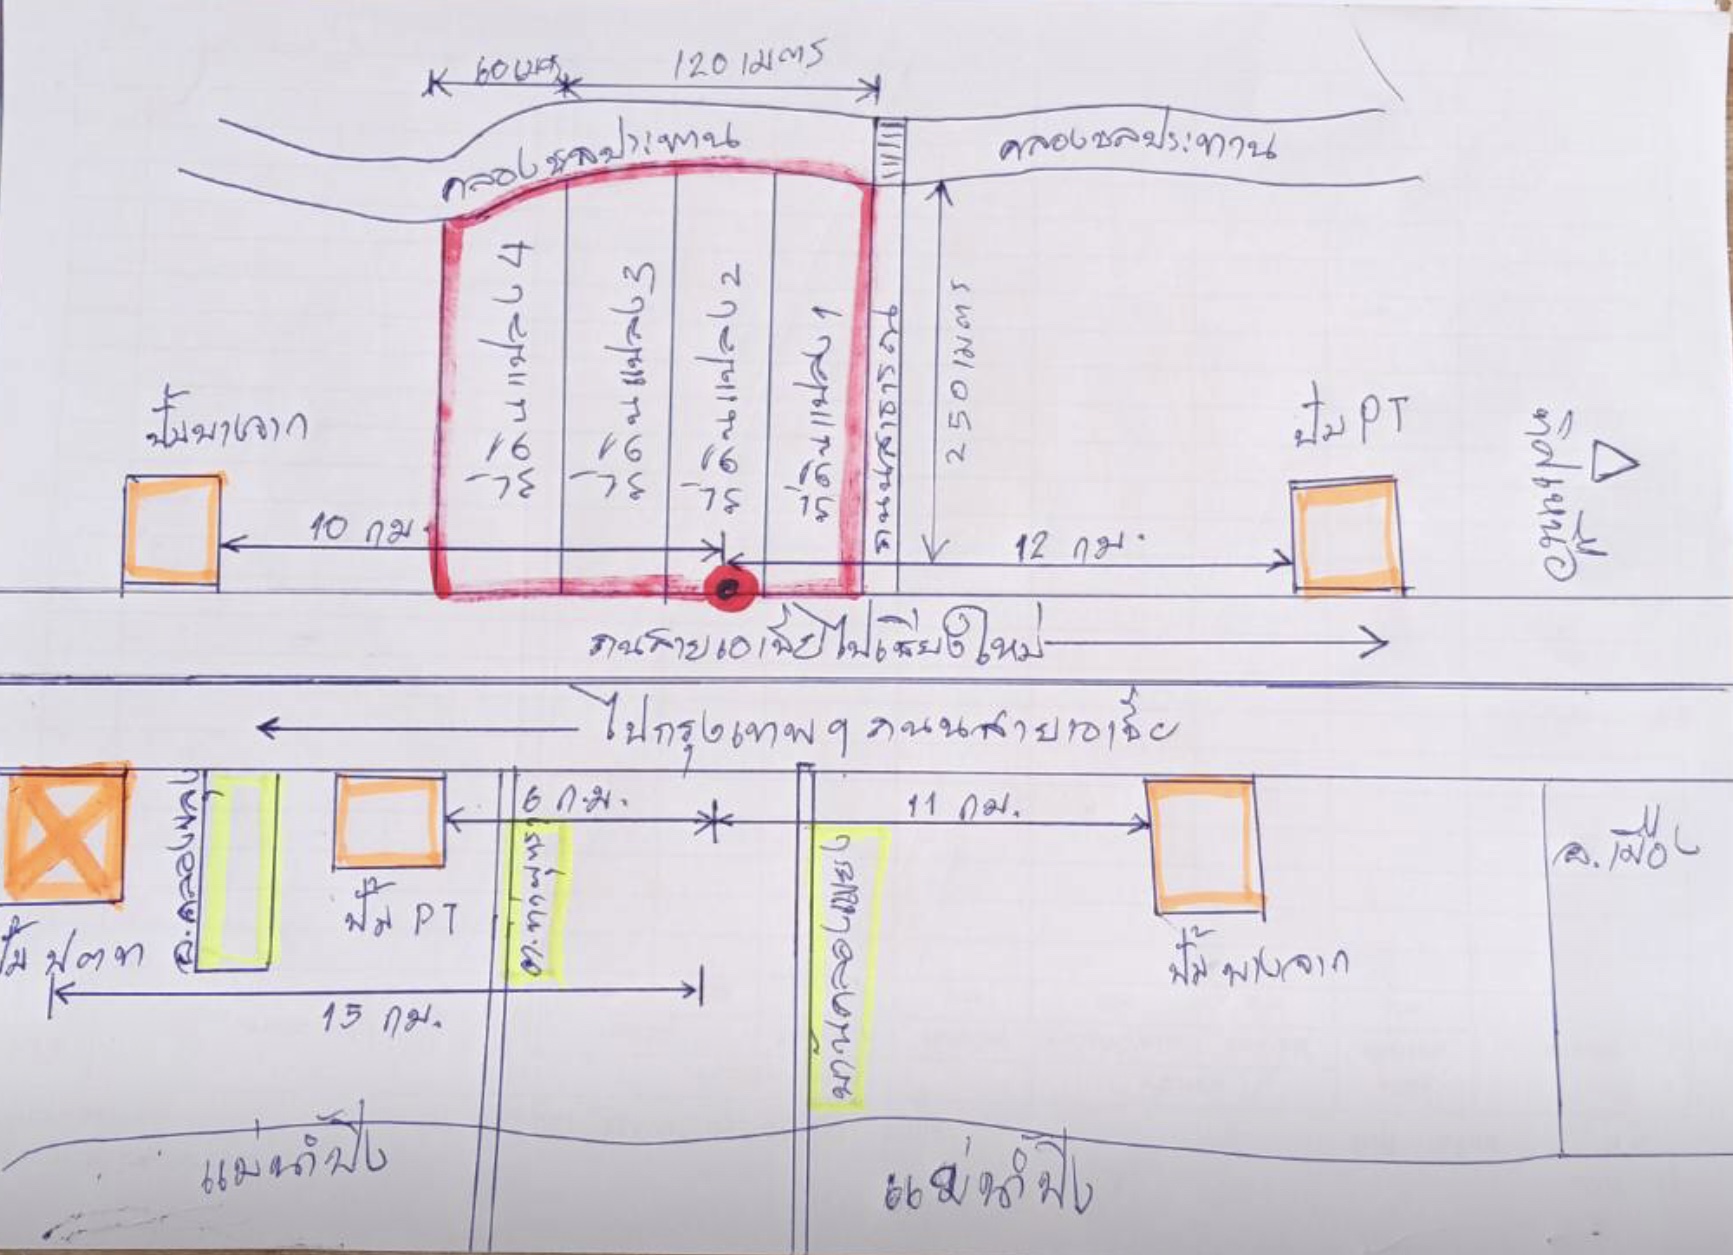 60 เมตร
120 เมตร
คลองชลประทาน
คลองชลประทาน
ที่ดินแปลง 4
ที่ดินแปลง 3
ที่ดินแปลง 2
ที่ดินแปลง 1
ถนนสาธารณะ
250 เมตร
ปั๊มบางจาก
ปั๊ม PT
10 กม.
12 กม.
ถนสายเอเซียไปเชียงใหม่
ไปกรุงเทพฯ ถนนสายเอเซีย
6 ก.ม.
11 กม.
อ.คลองขลุง
อ.เมือง
ปั๊ม PT
ปั๊ม ปตท
ปั๊ม บางจาก
15 กม.
แม่น้ำปิง
แม่น้ำปิง